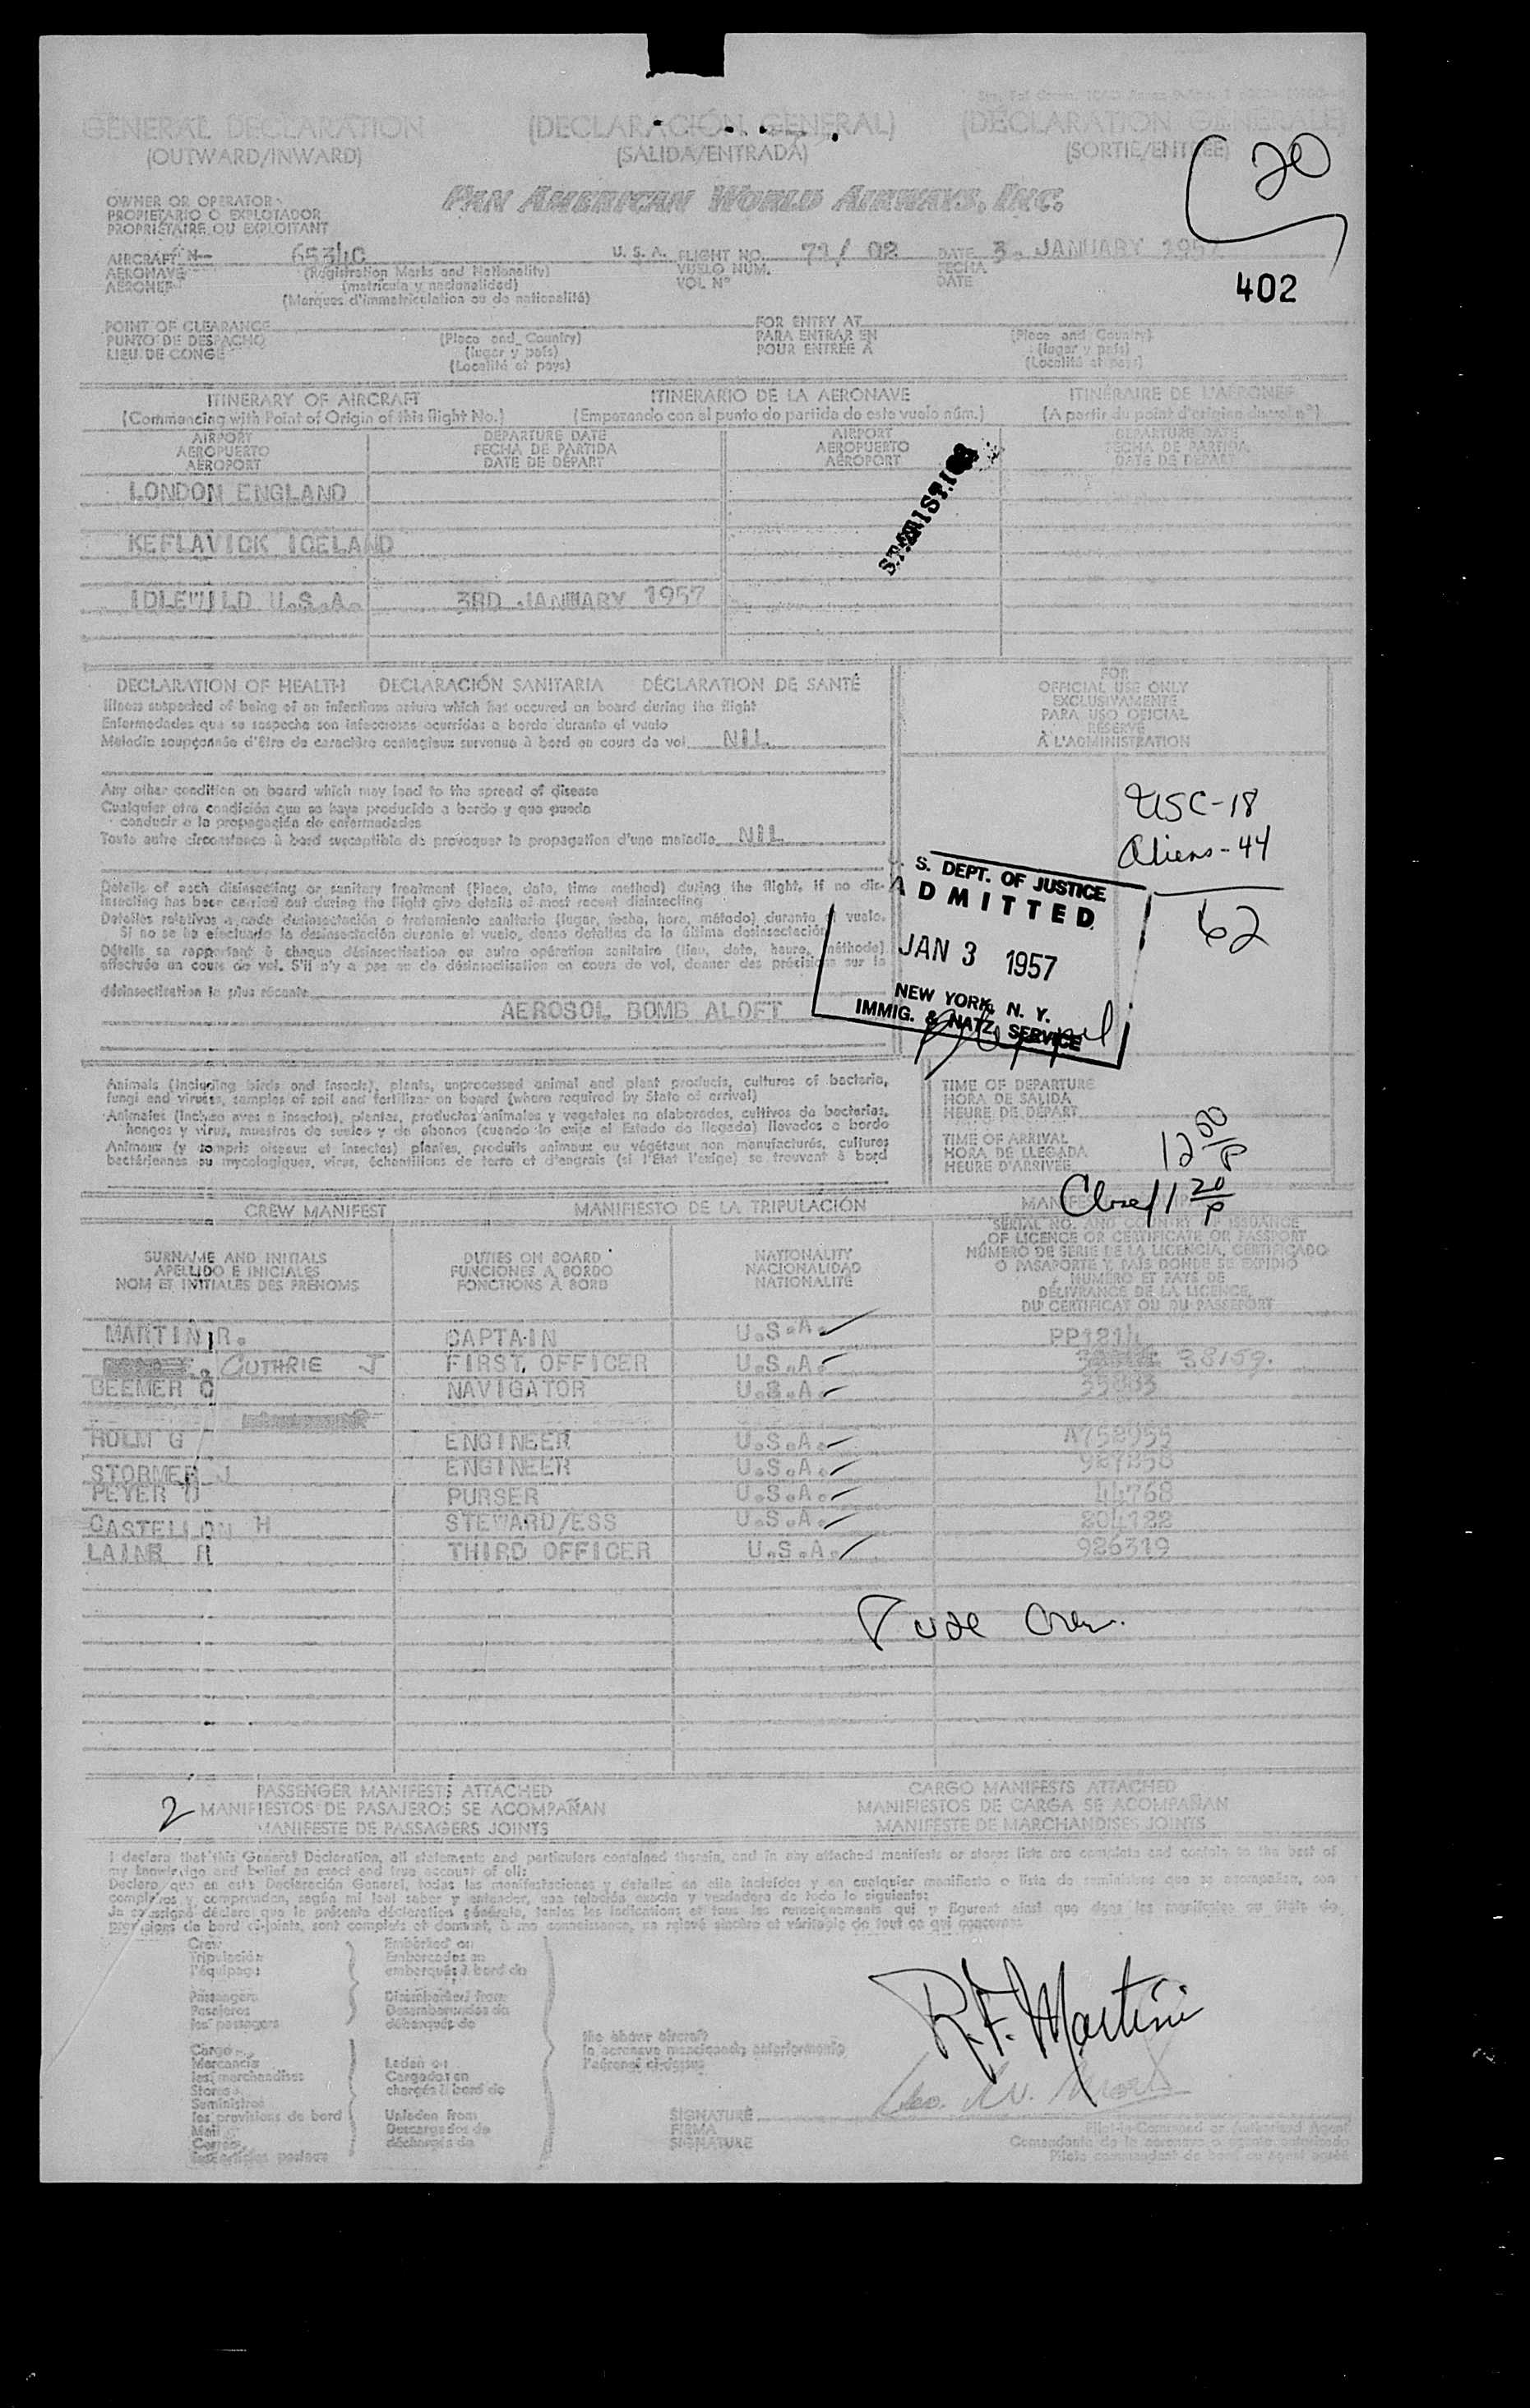 GENERAL DECLARATION (DECLARACIÓN GENERAL) (DÉCLARATION GÉNÉRALE)
(OUTWARD/INWARD) (SALIDA/ENTRADA) (SORTIE/ENTRÉE)
20
OWNER OR OPERATOR
PROPIETARIO O EXPLOTADOR
PROPRIÉTAIRE OU EXPLOITANT
PAN AMERICAN WORLD AIRWAYS, INC.
AIRCRAFT N- 6534C U. S. A. FLIGHT NO. 71/02 DATE 3. JANUARY 1957
AERONAVE (Registration Marks and Nationality) VUELO NUM. FECHA
AERONEF (matrícula y nacionalidad) VOL Nº DATE
(Marques d'immatriculation ou de nationalité)
402
POINT OF CLEARANCE FOR ENTRY AT
PUNTO DE DESPACHO (Place and Country) PARA ENTRAR EN (Place and Country)
LIEU DE CONGÉ (lugar y país) POUR ENTRÉE À (lugar y país)
(Localité et pays) (Localité et pays)
ITINERARY OF AIRCRAFT ITINERARIO DE LA AERONAVE ITINÉRAIRE DE L'AÉRONEF
(Commencing with Point of Origin of this flight No.) (Empezando con el punto de partida de este vuelo núm.) (A partir du point d'origine du vol nº)
AIRPORT DEPARTURE DATE AIRPORT DEPARTURE DATE
AEROPUERTO FECHA DE PARTIDA AEROPUERTO FECHA DE PARTIDA
AÉROPORT DATE DE DÉPART AÉROPORT DATE DE DÉPART
LONDON ENGLAND
KEFLAVICK ICELAND
IDLEWILD U.S.A. 3RD JANUARY 1957
DECLARATION OF HEALTH DECLARACIÓN SANITARIA DÉCLARATION DE SANTÉ
Illness suspected of being of an infectious nature which has occured on board during the flight
Enfermedades que se sospecha son infecciosas ocurridas a bordo durante el vuelo
Maladie soupçonnée d'être de caractère contagieux survenue à bord en cours de vol NIL
FOR
OFFICIAL USE ONLY
EXCLUSIVAMENTE
PARA USO OFICIAL
RÉSERVÉ
À L'ADMINISTRATION
Any other condition on board which may lead to the spread of disease
Cualquier otra condición que se haya producido a bordo y que pueda
conducir a la propagación de enfermedades
Toute autre circonstance à bord susceptible de provoquer la propagation d'une maladie NIL
USC-18
Aliens-44
62
Details of each disinsecting or sanitary treatment (Place, date, time method) during the flight. If no dis-
insecting has been carried out during the flight give details of most recent disinsecting
Detalles relativos a cada desinsectación o tratamiento sanitario (lugar, fecha, hora, método) durante el vuelo.
Si no se ha efectuado la desinsectación durante el vuelo, dense detalles de la última desinsectación
Détails se rapportant à chaque désinsectisation ou autre opération sanitaire (lieu, date, heure, méthode)
effectuée au cours de vol. S'il n'y a pas eu de désinsectisation en cours de vol, donner des précisions sur la
désinsectisation la plus récente
AEROSOL BOMB ALOFT
S. DEPT. OF JUSTICE
ADMITTED
JAN 3 1957
NEW YORK, N. Y.
IMMIG. & NATZ. SERVICE
Animals (including birds and insects), plants, unprocessed animal and plant products, cultures of bacteria,
fungi and viruses, samples of soil and fertilizer on board (where required by State of arrival)
Animales (incluso aves e insectos), plantas, productos animales y vegetales no elaborados, cultivos de bacterias,
hongos y virus, muestras de suelos y de abonos (cuando lo exija el Estado de llegada) llevados a bordo
Animaux (y compris oiseaux et insectes) plantes, produits animaux ou végétaux non manufacturés, cultures
bactériennes ou mycologiques, virus, échantillons de terre et d'engrais (si l'État l'exige) se trouvant à bord
TIME OF DEPARTURE
HORA DE SALIDA
HEURE DE DÉPART
TIME OF ARRIVAL
HORA DE LLEGADA
HEURE D'ARRIVÉE
12 00 P
Closed 1 20 P
CREW MANIFEST MANIFIESTO DE LA TRIPULACIÓN
SURNAME AND INITIALS DUTIES ON BOARD NATIONALITY
APELLIDO E INICIALES FUNCIONES A BORDO NACIONALIDAD
NOM ET INITIALES DES PRÉNOMS FONCTIONS À BORD NATIONALITÉ
SERIAL NO. AND COUNTRY OF ISSUANCE
OF LICENCE OR CERTIFICATE OR PASSPORT
NÚMERO DE SERIE DE LA LICENCIA, CERTIFICADO
O PASAPORTE Y PAÍS DONDE SE EXPIDIÓ
NUMÉRO ET PAYS DE
DÉLIVRANCE DE LA LICENCE,
DU CERTIFICAT OU DU PASSEPORT
MARTIN R. CAPTAIN U.S.A. PP1214
GUTHRIE J FIRST OFFICER U.S.A. 38159.
BEEMER C NAVIGATOR U.S.A.
HOLM G ENGINEER U.S.A. A758955
STORMER J ENGINEER U.S.A.
PEYER U PURSER U.S.A. 44768
CASTELLON H STEWARD/ESS U.S.A. 204122
LAINE R THIRD OFFICER U.S.A. 926319
Crew.
2
PASSENGER MANIFESTS ATTACHED CARGO MANIFESTS ATTACHED
MANIFIESTOS DE PASAJEROS SE ACOMPAÑAN MANIFIESTOS DE CARGA SE ACOMPAÑAN
MANIFESTE DE PASSAGERS JOINTS MANIFESTE DE MARCHANDISES JOINTS
I declare that this General Declaration, all statements and particulars contained therein, and in any attached manifests or stores lists are complete and contain to the best of
my knowledge and belief an exact and true account of all:
Declaro que en esta Declaración General, todas las manifestaciones y detalles en ella incluidos y en cualquier manifiesto o lista de suministros que se acompañan, son
completos y comprenden, según mi leal saber y entender, una relación exacta y verdadera de todo lo siguiente:
Crew Embarked on
Tripulación Embarcados en
l'équipage embarqués à bord de
Passengers Disembarked from
Pasajeros Desembarcados de
les passagers débarqués de
Cargo
Mercancía Laden on
les marchandises Cargadas en
Stores chargés à bord de
Suministros
les provisions de bord Unladen from
Mail Descargados de
Correo déchargés de
the above aircraft
la aeronave mencionada anteriormente
l'aéronef ci-dessus
R.F. Martin
SIGNATURE
FIRMA
SIGNATURE
Pilot-in-Command or Authorized Agent
Comandante de la aeronave o agente autorizado
Pilote commandant de bord ou agent agréé